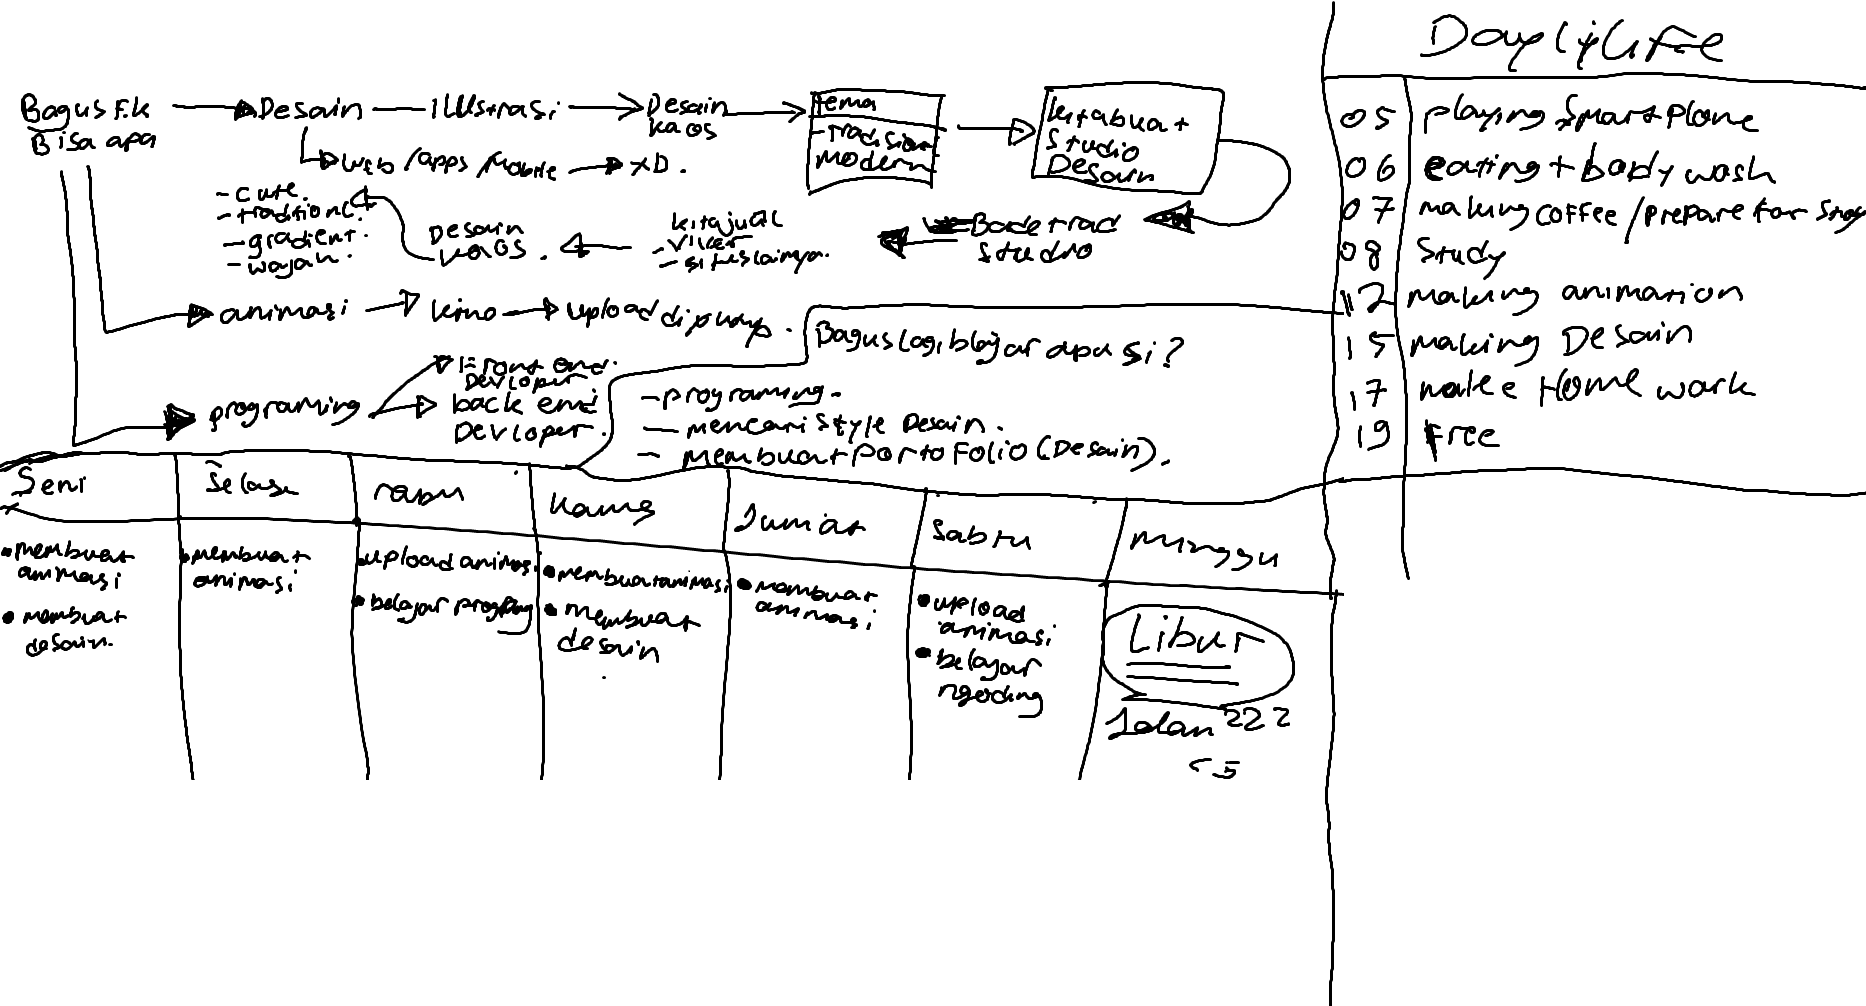 Bagus F.k
Bisa apa
Desain
ILUstrasi
Desain
kaos
tema
-tradision
modern
kitabuat
Studio
Desain
web/apps/Mobile
XD.
- cute.
- traditional
- gradient.
- wajah.
Desain
kaos.
kitajual
- situslainya.
Badetrad
studio
animasi
kino
upload di
Front end.
Devloper
programing
back end
Devloper.
Bagus lagi blajar apa si?
- programing.
- mencari Style Desain.
- membuat portofolio (Desain).
DaylyLife
05 playing Smart Plone
06 eating + body wash
07 making coffee / prepare for
08 Study
12 making animation
15 making Desain
17 make Home work
19 Free
Seni
Selasa
rabu
Kamis
Jumat
Sabtu
minggu
• membuat
animasi
• membuat
desain.
• membuat
animasi
• upload animasi
• belajar
• membuat animasi
• membuat
desain
• membuat
animasi
• upload
animasi
• belajar
ngoding
Libur
Jalan 222
<5